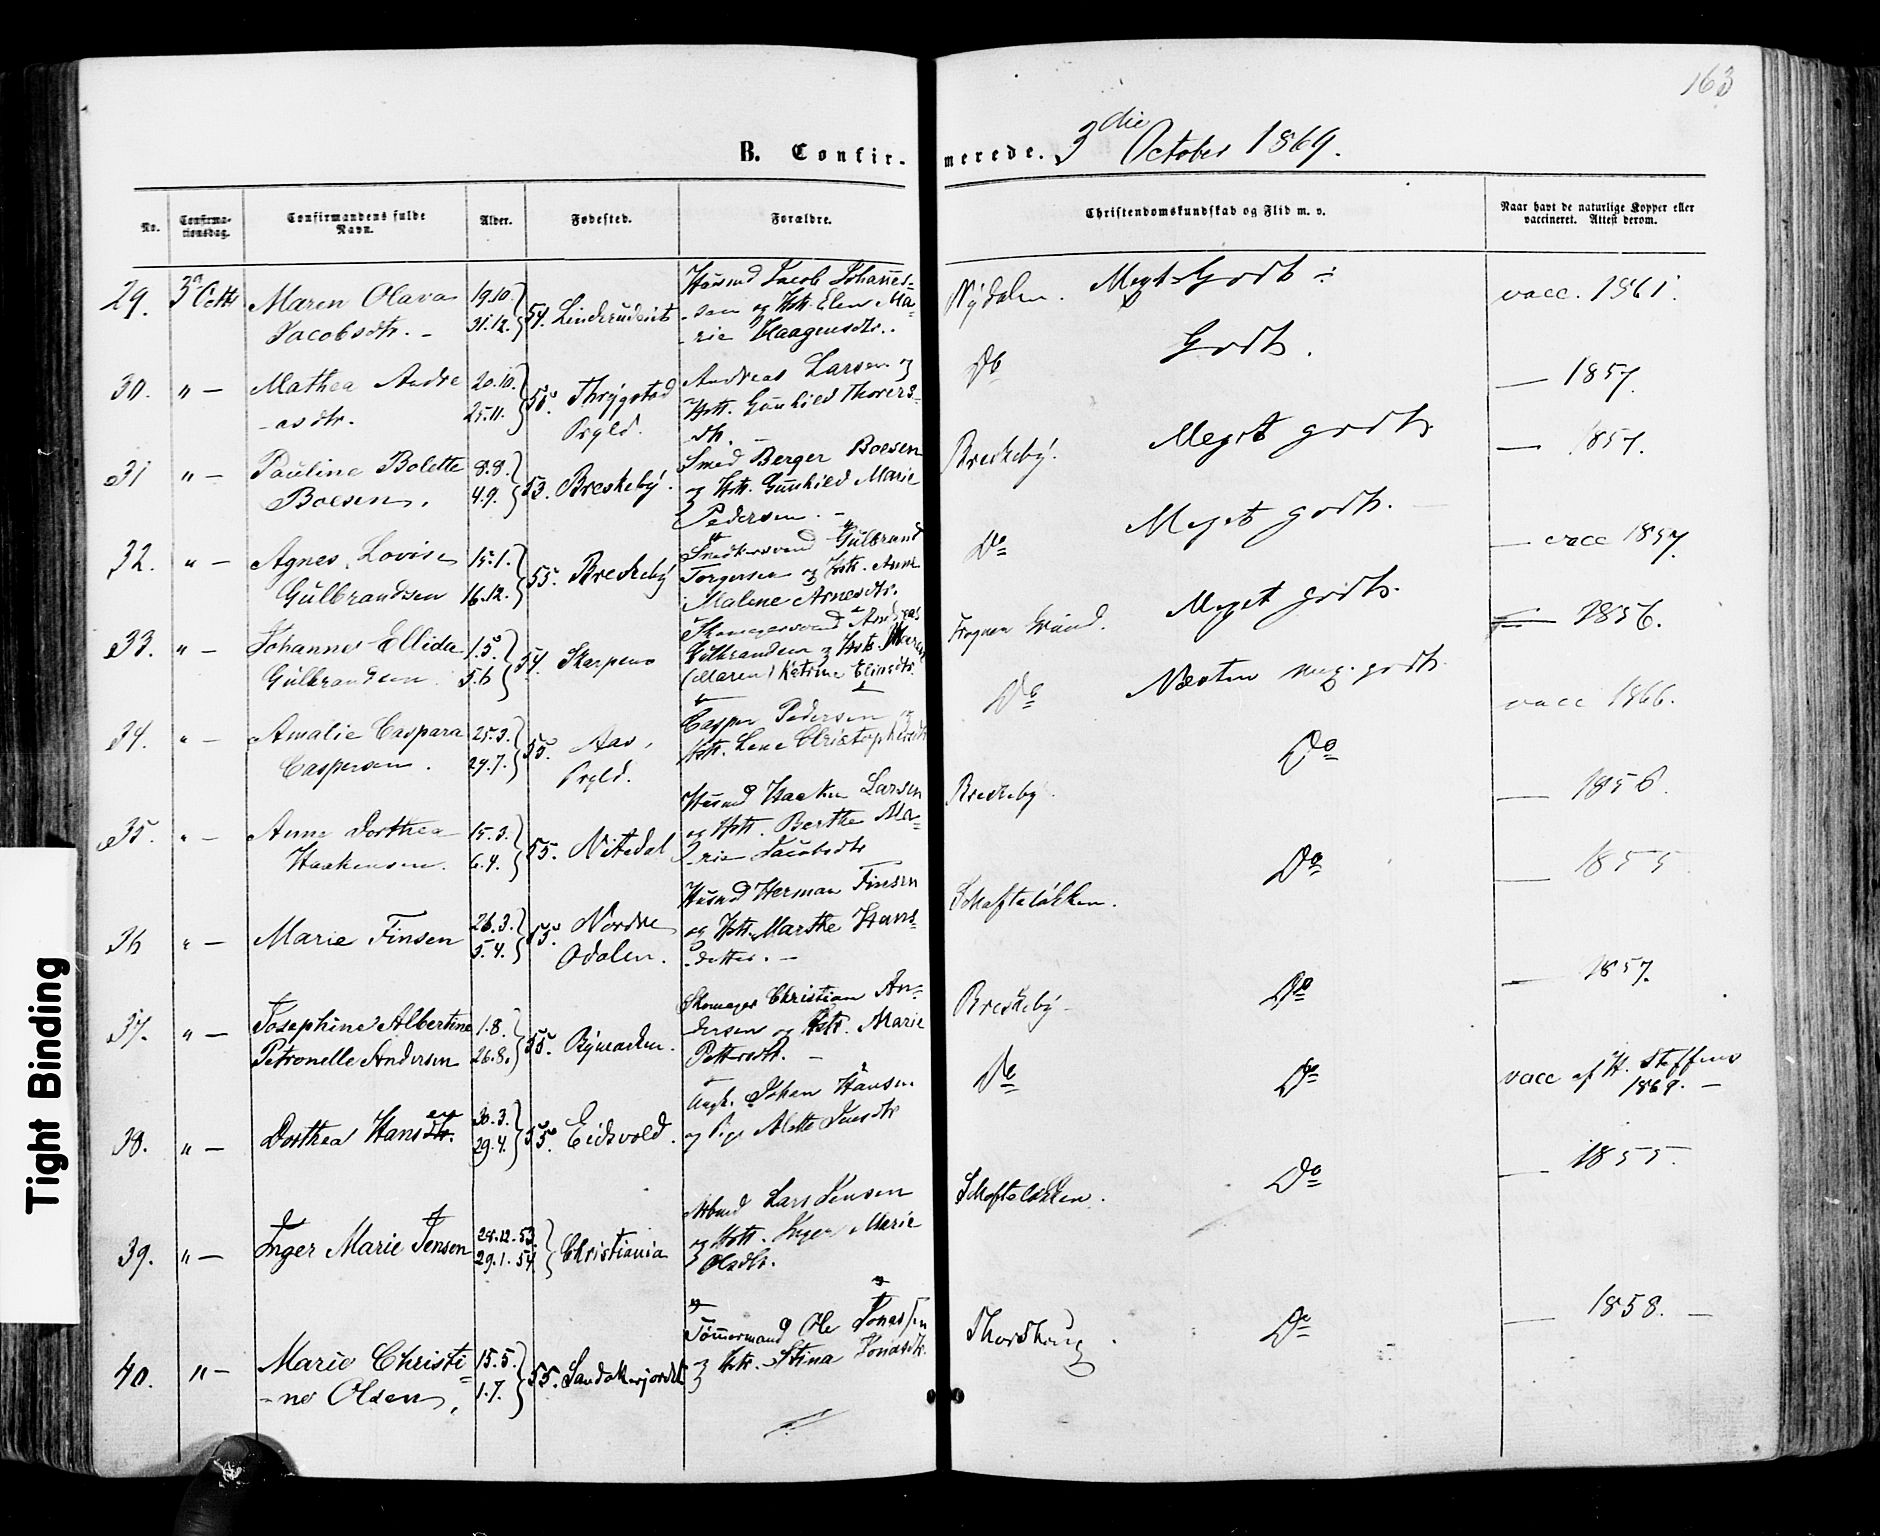 163
B. Confirmerede. 3die October 1869.
No.
Confirmationsdag.
Confirmandens fulde Navn.
Alder.
Fødested.
Forældre.
Christendomskundskab og Flid m. v.
Naar havt de naturlige Kopper eller vaccineret. Attest derom.
29. 3 Octb Maren Olava 19.10. 54. Linderudeiet Huusmd Jacob Johannes- Nydalen. Meget Godt vacc. 1861.
Jacobsdtr. - 31.12. -sen og Hstr. Elen Ma-
-rie Haagensdtr.
30. " - Mathea Andre 20.10. 55. Thrygstad Andreas Larsen og Do Godt. — 1857.
-asdtr. 25.11. Prgld. Hstr. Gunhild Thorers-
dtr. -
31 " - Pauline Bolette 8.8. 53. Breskeby. Smed Berger Boesen Breskeby. Meget godt. — 1857.
Boesen. 4.9. og Hstr. Gunhild Marie
Pedersen. -
32. " - Agnes Lovise 15.1. 55. Breskeby Snedkersvend Gulbrand Do Meget godt. — vacc 1857.
Gulbrandsen 16.12. Torgersen og Hstr. Anne
Malene Arnesdtr.
33. " - Johannes Ellida 1.5. 54. Skarpsno Skomagersvend Andreas Frogner Grund. Meget godt. — 1856.
Gulbrandsen 5.6 Gulbrandsen og Hstr.
(Maren) Katrine Eliasdtr.
34. " - Amalie Caspara 25.3. 55. Aas, Casper Pedersen og Do Næsten meg. godt. vacc 1866.
Caspersen. 29.7. Prgld. Hstr. Lene Christophersdtr
35. " - Anne Dorthea 15.3. 55. Nitedal Huusmd Haaken Larsen Breskeby. Do — 1856.
Haakensen. 6.4. og Hstr. Berthe Ma-
-rie Jacobsdtr
36 " - Marie Finsen 26.3. 55. Nordre Huusmd Herman Finsen Schafteløkken. Do — 1855
5.4. Odalen. og Hstr. Marthe Hans-
-datter. -
37. " - Josephine Albertine 1.8. 55. Bymarken. Skomager Christian An- Breskeby Do — 1857.
Petronelle Andersen 26.8. dersen og Hstr. Marie
Pettersdtr. -
38. " - Dorthea Hansen 30.3. 55. Eidsvold. Ungk. Johan Hansen Do Do vacc af H. Steffens
29.4. og Pige Alette Jensdtr 1869. -
39. " - Inger Marie Jensen 28.12.53 Christiania Arbmd Lars Jensen Schafteløkken. Do — 1855.
29.1.54. og Hstr. Inger Marie
Olsdtr.
40. " - Marie Christi- 15.5. 55. Sandakerjordet Tømmermand Ole Jonassen Thorshaug. Do — 1858. -
-ne Olsen, 1.7. og Hstr. Stina Jonasdtr.
Tight Binding